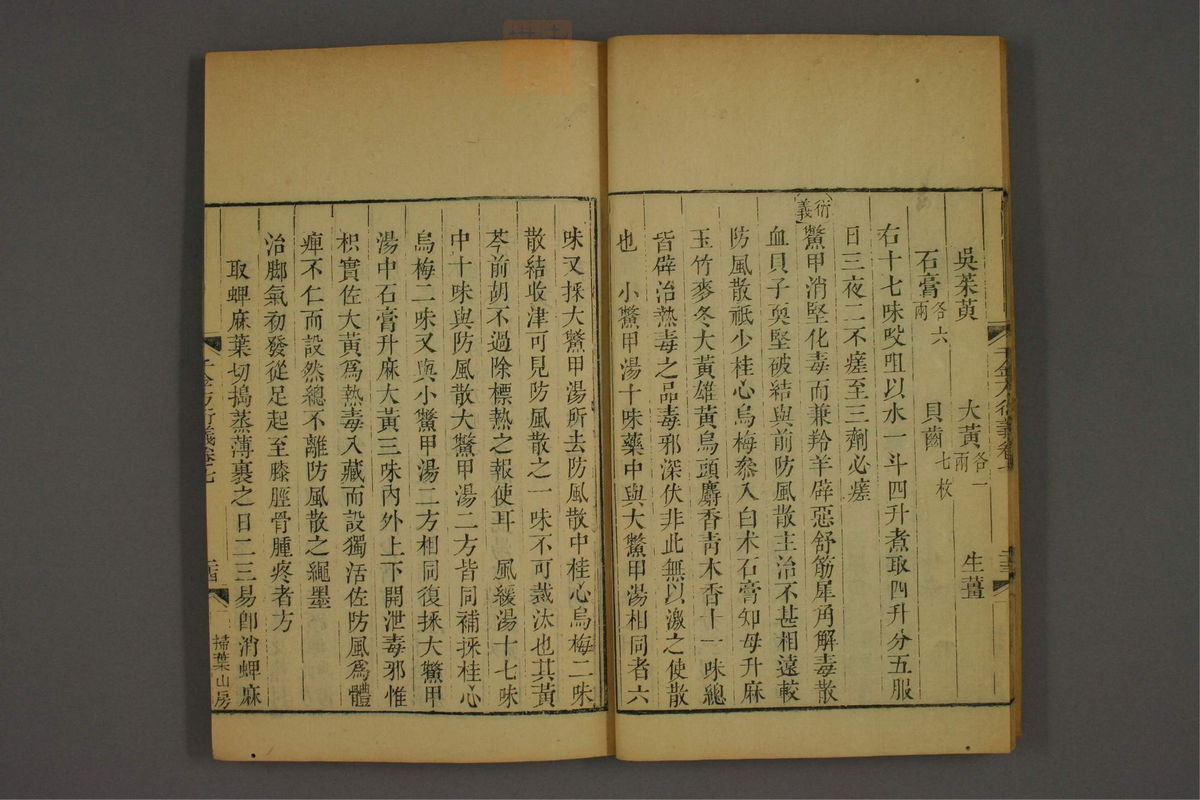 吳茱萸 大黃各一兩 生薑
石膏各六兩 貝齒七枚
右十七味㕮咀以水一斗四升煮取四升分五服
日三夜二不瘥至三劑必瘥
衍義 鱉甲消堅化毒而兼羚羊辟惡舒筋犀角解毒散
血貝子耎堅破結與前防風散主治不甚相遠較
防風散祇少桂心烏梅參入白朮石膏知母升麻
玉竹麥冬大黃雄黃烏頭麝香青木香十一味總
皆辟治熱毒之品毒邪深伏非此無以激之使散
也 小鱉甲湯十味藥中與大鱉甲湯相同者六
味又採大鱉甲湯所去防風散中桂心烏梅二味
散結收津可見防風散之一味不可裁汰也其黃
芩前胡不過除標熱之報使耳 風緩湯十七味
中十味與防風散大鱉甲湯二方皆同補採桂心
烏梅二味又與小鱉甲湯二方相同復採大鱉甲
湯中石膏升麻大黃三味內外上下開泄毒邪惟
枳實佐大黃爲熱毒入藏而設獨活佐防風爲體
痺不仁而設然總不離防風散之繩墨
治脚氣初發從足起至膝脛骨腫疼者方
取蜱麻葉切搗蒸薄裹之日二三易卽消蜱麻
千金方衍義卷七
掃葉山房